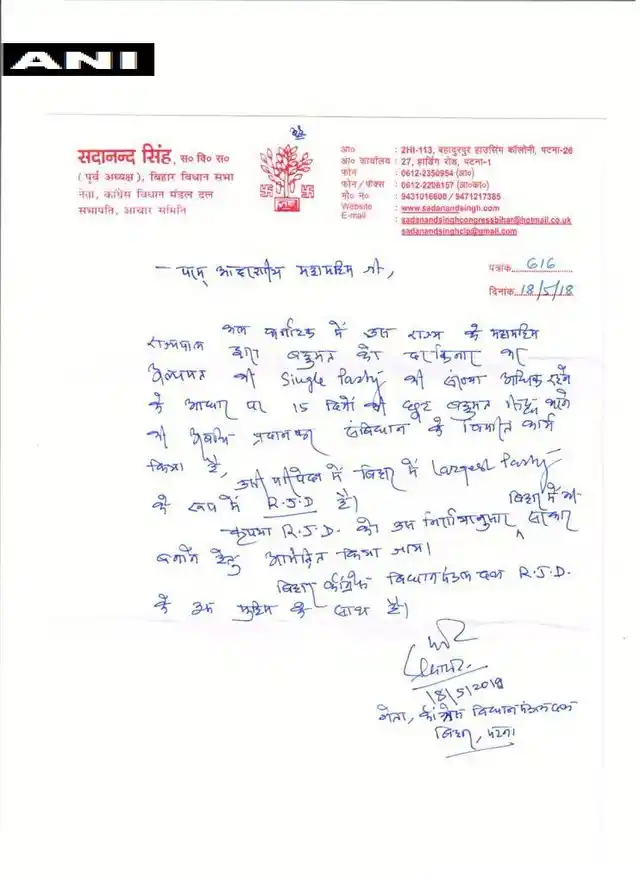 ANI
सदानन्द सिंह, स० वि० स०
( पूर्व अध्यक्ष ), बिहार विधान सभा
नेता, कांग्रेस विधान मंडल दल
सभापति, आचार समिति
आ० : 2HI-113, बहादुरपुर हाउसिंग कॉलोनी, पटना-26
आ० कार्यालय : 27, हार्डिंग रोड, पटना-1
फोन : 0612-2350954 (आ०)
फोन / फैक्स : 0612-2206157 (आ०का०)
मो० नं० : 9431016600 / 9471217385
Website : www.sadanandsingh.com
E-mail : sadanandsinghcongressbihar@hotmail.co.uk
sadanandsinghclp@gmail.com
पत्रांक 616
दिनांक 18/5/18
महामहिम जी,
कर्नाटक में उस राज्य के महामहिम
राज्यपाल द्वारा बहुमत को दरकिनार कर
अल्पमत की Single Party की संख्या अधिक रहने
के आधार पर 15 दिनों की छूट बहुमत सिद्ध करने
की प्रदान कर संविधान के विपरीत कार्य
किया है,
उसी परिपेक्ष में बिहार में largest Party
के रूप में R.J.D है।
कृपया R.J.D. को उस निर्णयानुसार बिहार में भी सरकार
बनाने हेतु आमंत्रित किया जाय।
बिहार काँग्रेस विधानमंडल दल R.J.D.
के इस मुहिम के साथ है।
18/5/2018
नेता, काँग्रेस विधानमंडल दल
बिहार, पटना